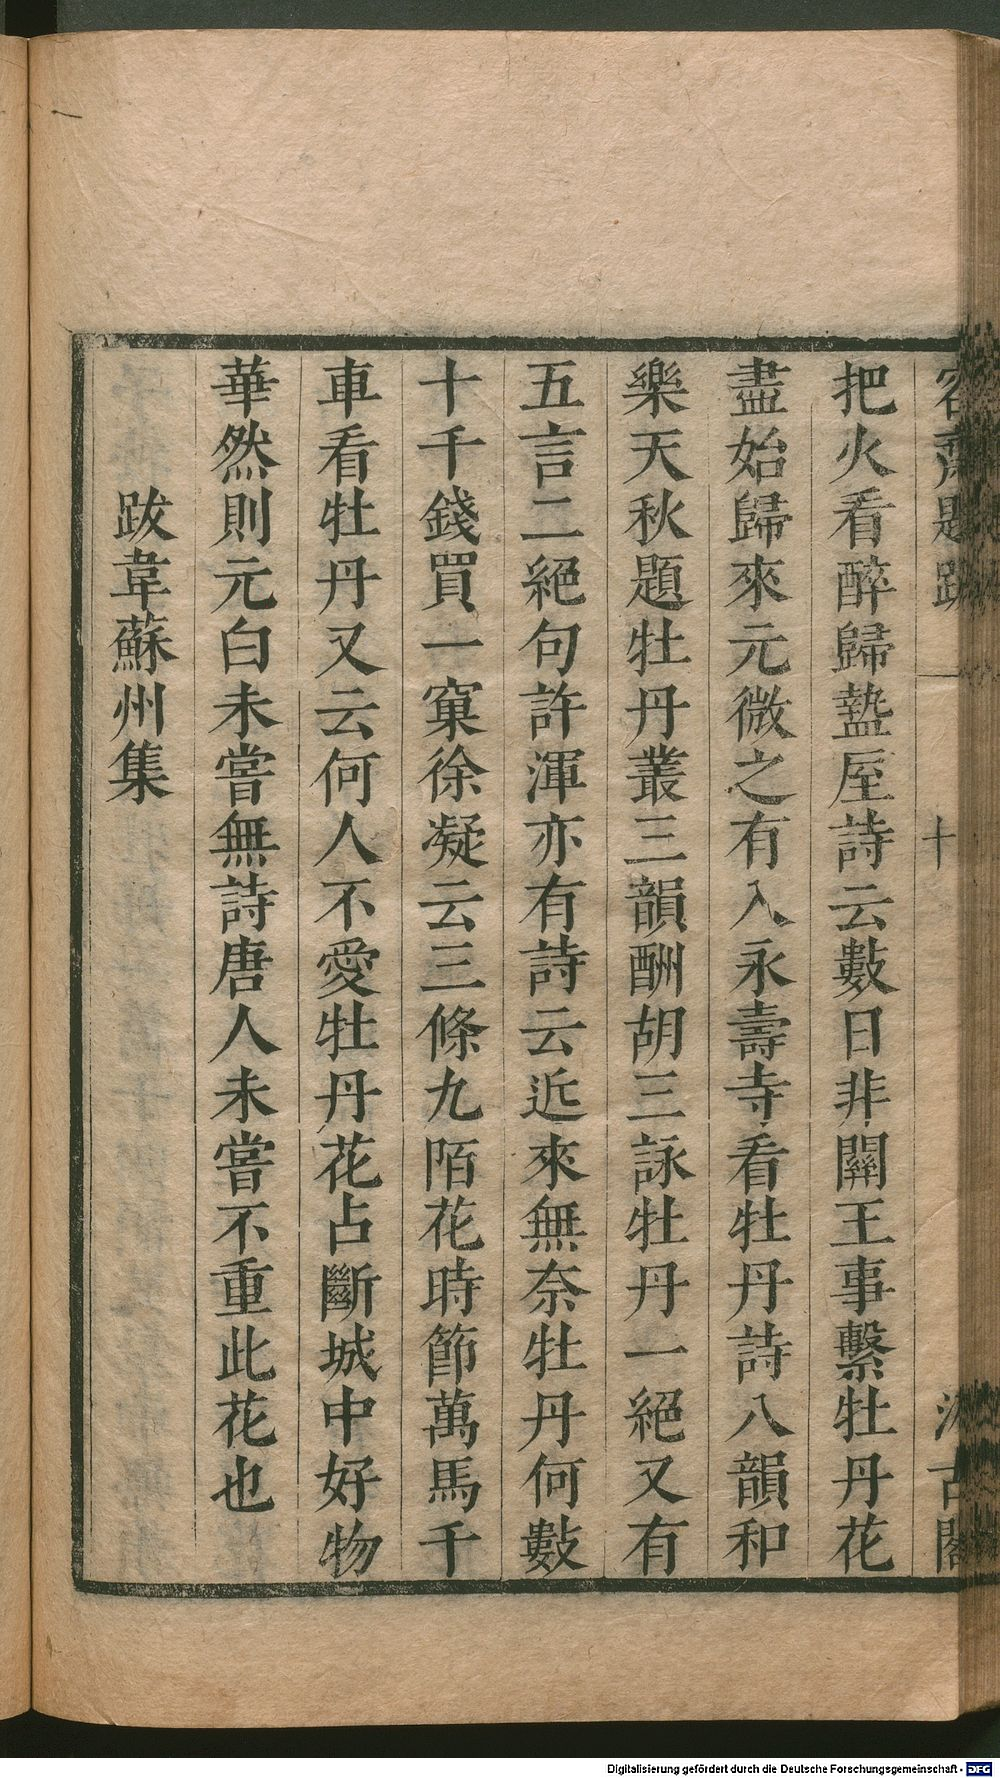 容齋題跋 十 汲古閣
把火看醉歸盩厔詩云數日非關王事繫牡丹花
盡始歸來元微之有入永壽寺看牡丹詩八韻和
樂天秋題牡丹叢三韻酬胡三詠牡丹一絕又有
五言二絕句許渾亦有詩云近來無奈牡丹何數
十千錢買一窠徐凝云三條九陌花時節萬馬千
車看牡丹又云何人不愛牡丹花占斷城中好物
華然則元白未嘗無詩唐人未嘗不重此花也
跋韋蘇州集
Digitalisierung gefördert durch die Deutsche Forschungsgemeinschaft - DFG